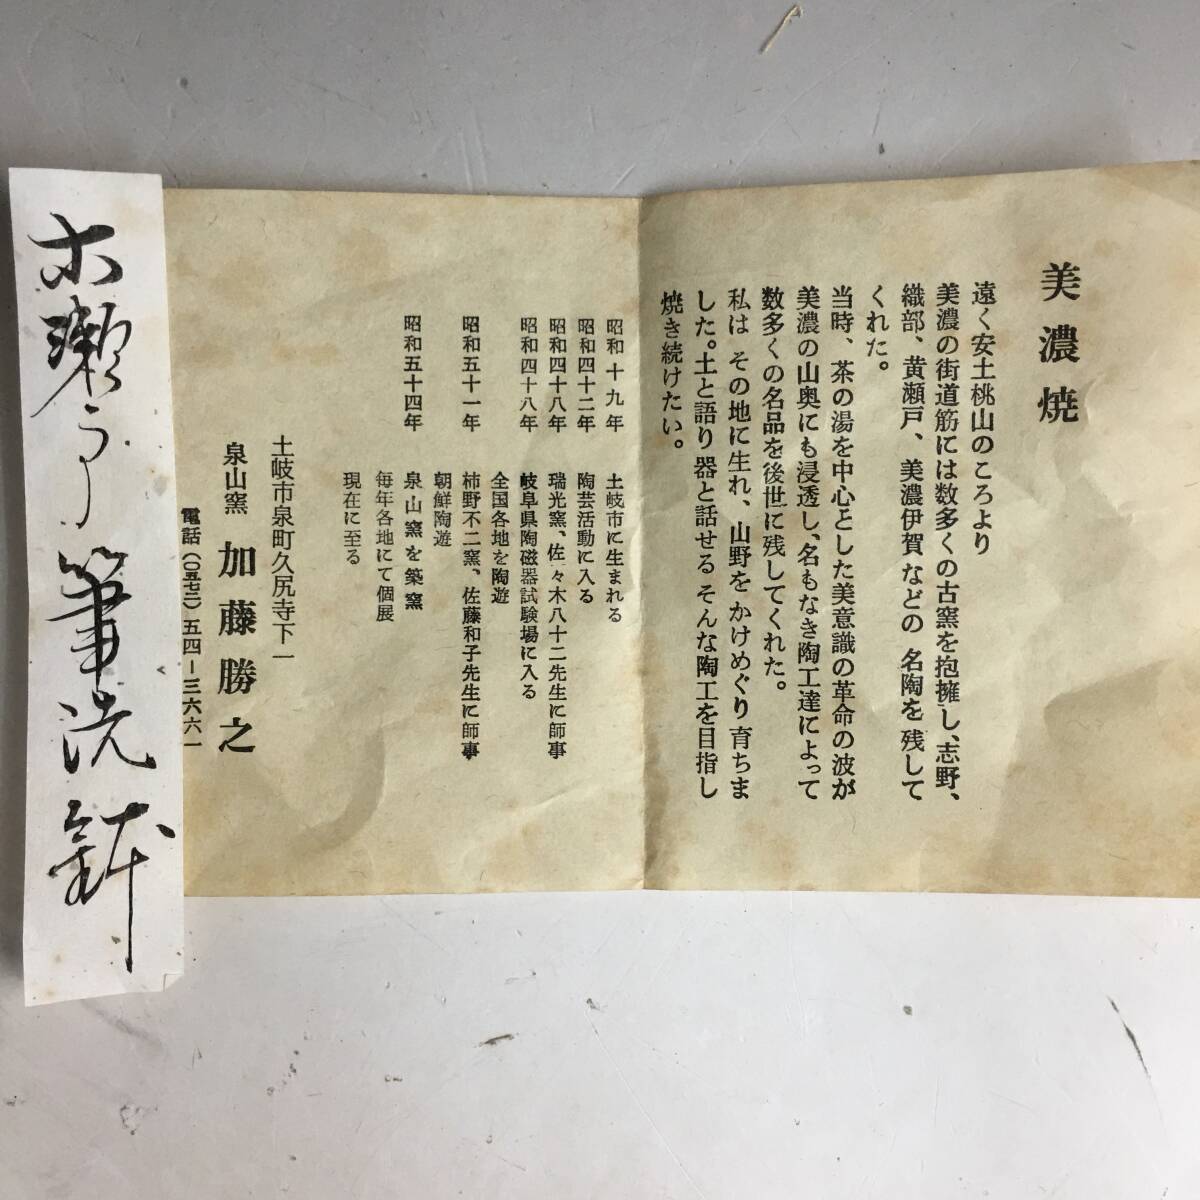 美濃焼
遠く安土桃山のころより
美濃の街道筋には数多くの古窯を抱擁し、志野、
織部、黄瀬戸、美濃伊賀などの 名陶を残して
くれた。
当時、茶の湯を中心とした美意識の革命の波が
美濃の山奥にも浸透し、名もなき陶工達によって
数多くの名品を後世に残してくれた。
私は その地に生れ、山野を かけめぐり 育ちま
した。土と語り 器と話せる そんな陶工を目指し
焼き続けたい。
昭和十九年 土岐市に生まれる
昭和四十二年 陶芸活動に入る
昭和四十八年 瑞光窯、佐々木八十二先生に師事
昭和四十八年 岐阜県陶磁器試験場に入る
全国各地を陶遊
昭和五十一年 柿野不二窯、佐藤和子先生に師事
朝鮮陶遊
昭和五十四年 泉山窯を築窯
毎年各地にて個展
現在に至る
土岐市泉町久尻寺下一
泉山窯 加藤勝之
電話(〇五七二)五四-三六六一
筆洗鉢